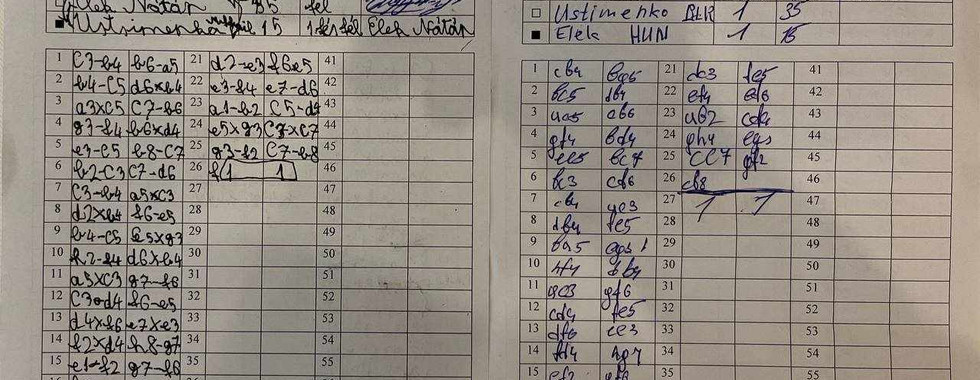 Elek Nátán 35 fel
■ Ustimenko 15 1 fél fél Elek Nátán
1 C3-b4 b6-a5 21 d2-e3 f6e5 41
2 b4-C5 d6xb4 22 e3-f4 e7-d6 42
3 a3xC5 C7-b6 23 a1-b2 C5-d4 43
4 g3-f4 b6xd4 24 e5xg3 C7xC7 44
5 e3-C5 b8-C7 25 g3-f2 C7-b8 45
6 b2-C3 C7-d6 26 1 1 46
7 C3-b4 a5xC3 27 47
8 d2xb4 f6-e5 28 48
9 b4-C5 e5xg3 29 49
10 h2-f4 d6xb4 30 50
11 a5xC3 g7-f6 31 51
12 C3-d4 f6-e5 32 52
13 d4xf6 e7xe3 33 53
14 f2xd4 h8-g7 34 54
15 e1-f2 g7-f6 35 55
□ Ustimenko BLR 1 35
■ Elek HUN 1 15
1 cb4 ba5 21 de3 fe5 41
2 bc5 db4 22 ef4 ed6 42
3 ac5 cb6 23 ab2 cd4 43
4 gf4 bd4 24 gh4 eg5 44
5 ec5 bc7 25 cc7 gf2 45
6 bc3 cd6 26 cb8 46
7 cb4 ac3 27 1 1 47
8 db4 fe5 28 48
9 ba5 eg3 29 49
10 hf4 db4 30 50
11 ac3 gf6 31 51
12 cd4 fe5 32 52
13 df6 ee3 33 53
14 fd4 hg7 34 54
15 ef2 gf6 35 55